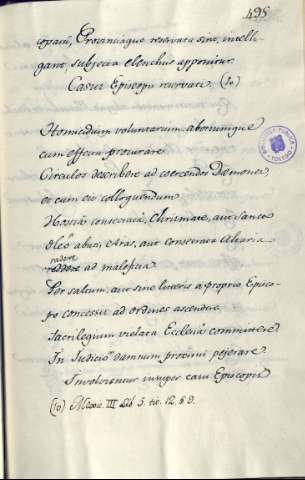 495
copati, Provinciaque reservata sint, intelli
gant, subjecta elenchus apponitur.
Casus Episcopo reservati. (10)
Homicidium voluntarium, abortumque
cum effectu procurare.
Circulos describere ad coercendos Dæmones
et cum eis colloquendum
Hostia consecrata, Chrismate, aut Sancto
Oleo abuti, Aras, aut consecrata Altaria
radere
ad maleficia
Per saltum, aut sine literis a proprio Episco-
po concessis ad ordines ascendere
Sacrilegium violata Ecclesia committere
In Judicio damnum proximi pejerare.
Involverentur insuper casu Episcopis
(10) Mexic. III Lib 5. tit. 12. § 9.